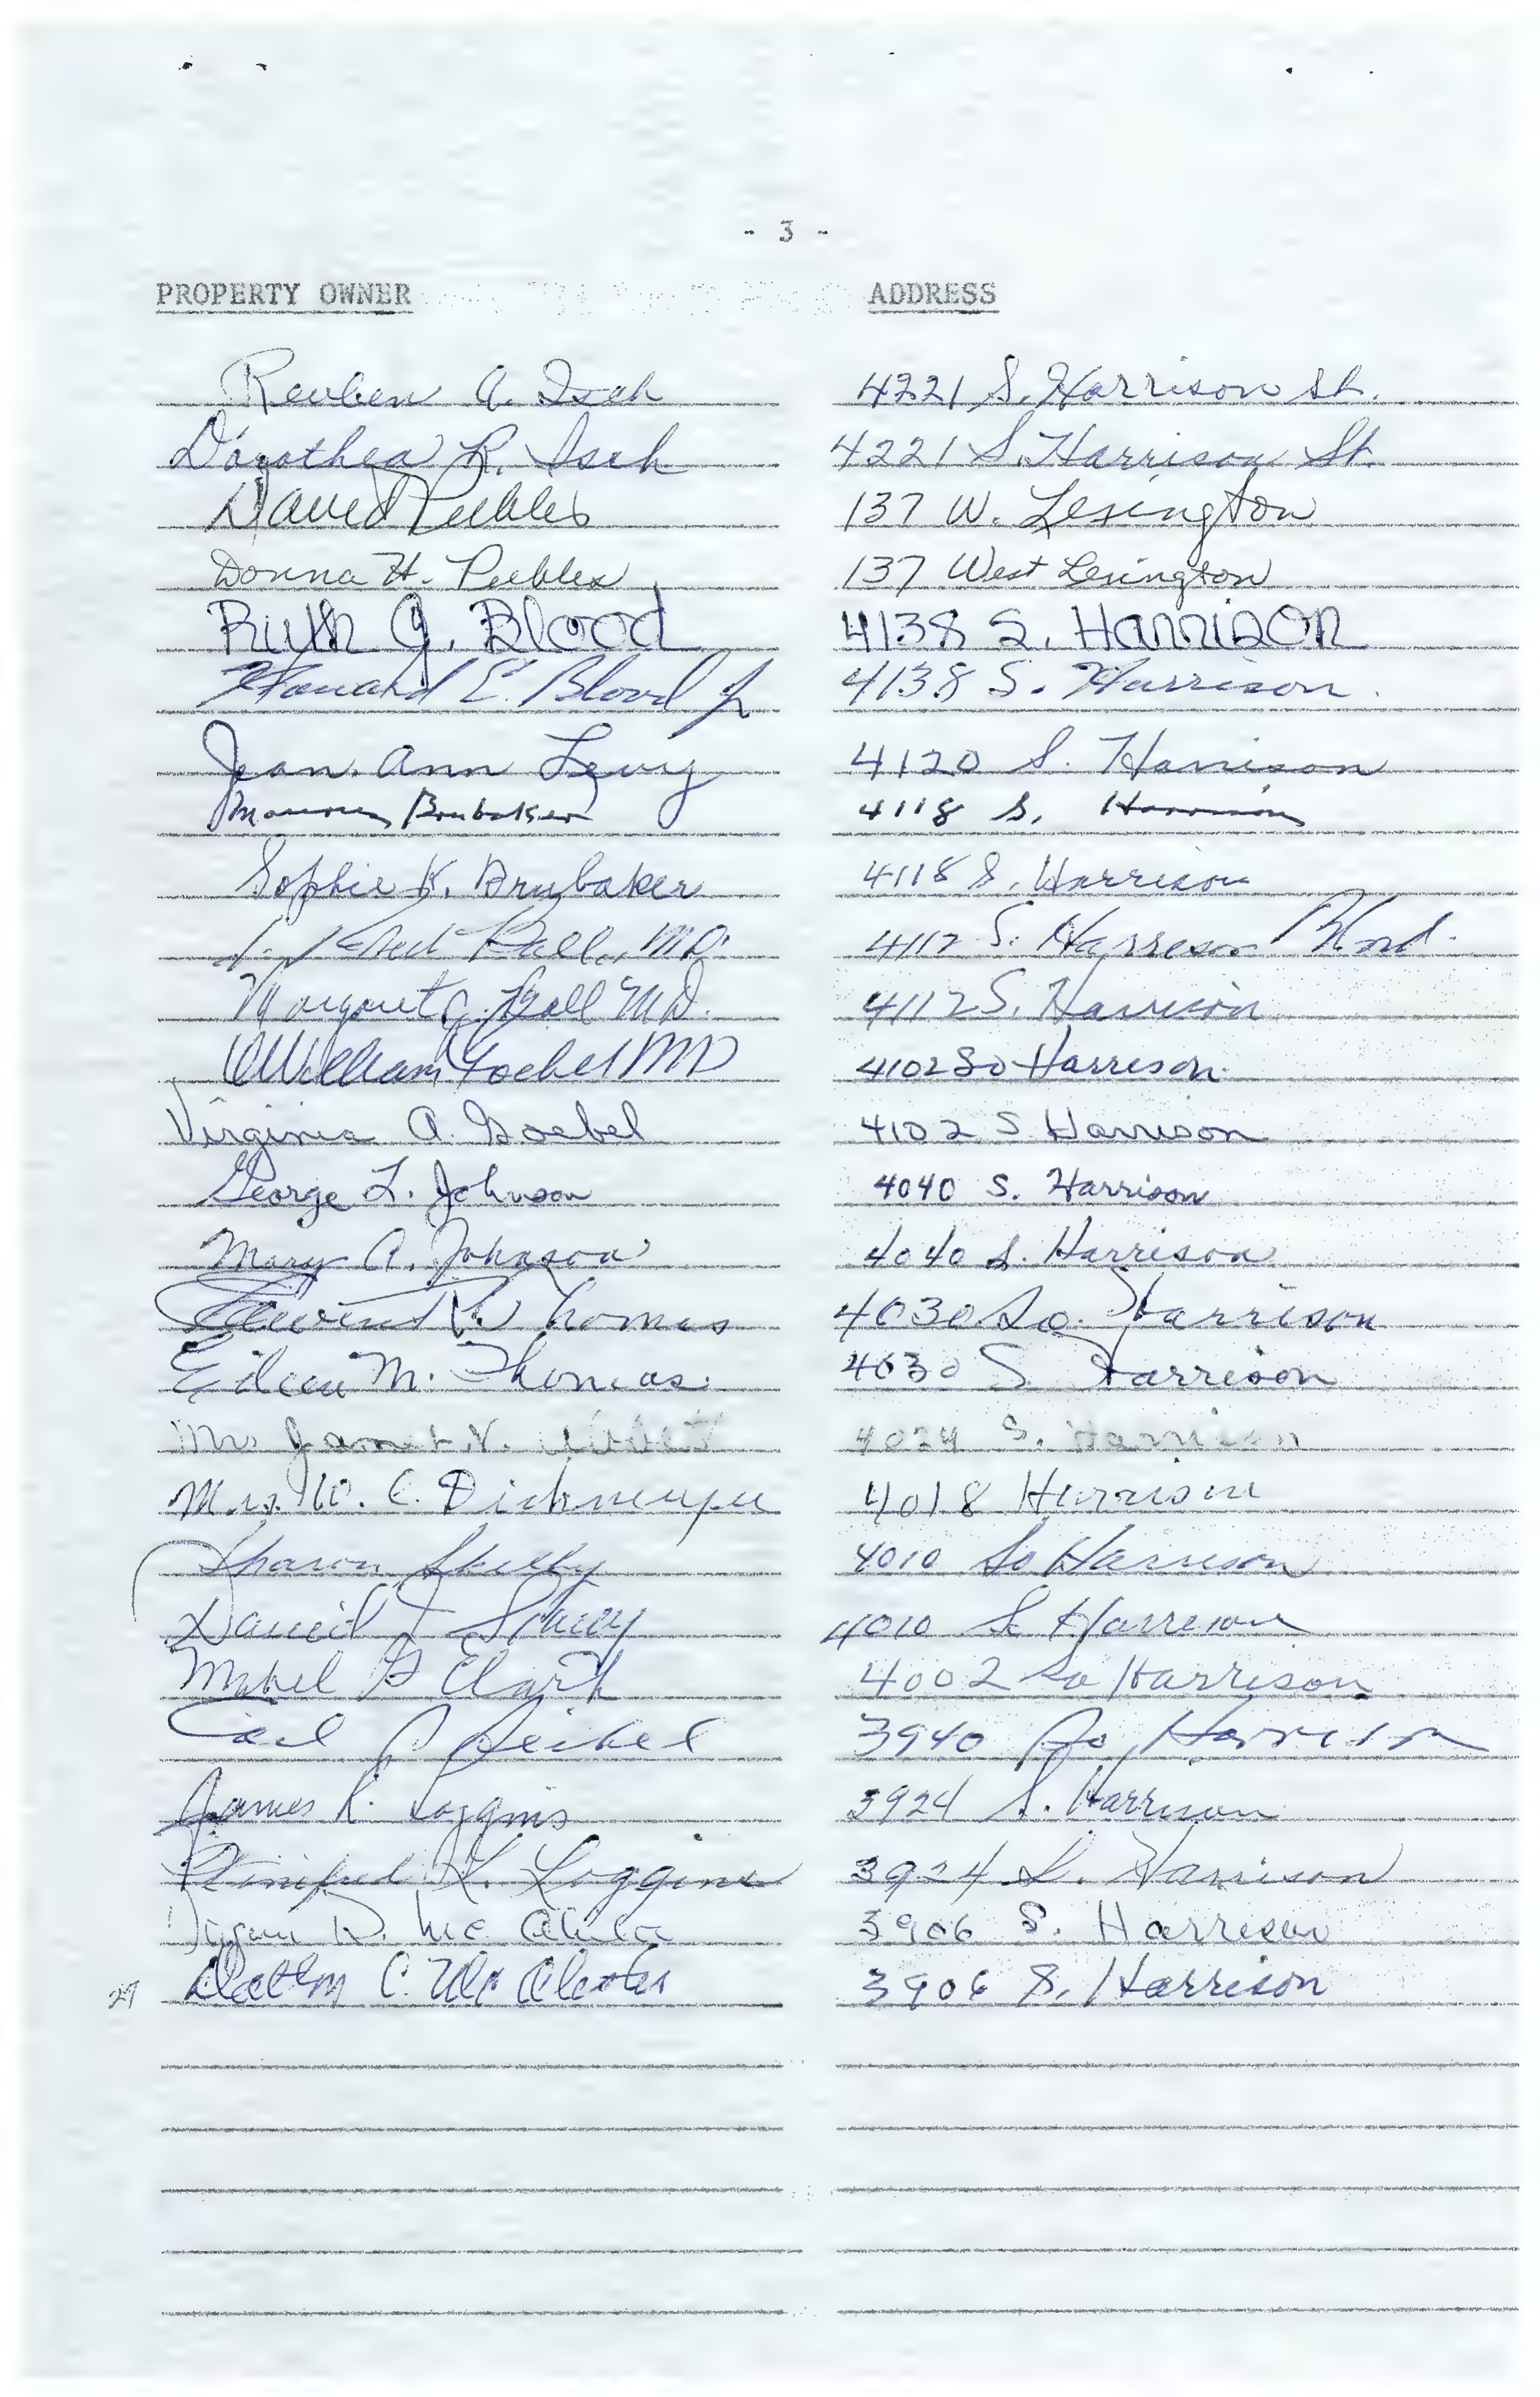 - 3 -
PROPERTY OWNER ADDRESS
Reuben A. Isch 4221 S. Harrison St.
Dorothea R. Isch 4221 S. Harrison St.
David Peebles 137 W. Lexington
Donna H. Peebles 137 West Lexington
Ruth A. Blood 4138 S. HARRISON
Howard E. Blood Jr 4138 S. Harrison.
Jean Ann Levy 4120 S. Harrison
Brubaker 4118 S. Harrison
Sophie K. Brubaker 4118 S. Harrison
Ball, M.D. 4112 S. Harrison Blvd.
Margaret Ball M.D. 4112 S. Harrison
William Goebel MD 4102 So Harrison
Virginia A. Goebel 4102 S Harrison
George L. Johnson 4040 S. Harrison
Mary A. Johnson 4040 S. Harrison
R Thomas 4030 So. Harrison
Eileen M. Thomas 4030 S Harrison
Mrs Janet V. 4024 S. Harrison
Mrs. W. C. Dickmeyer 4018 Harrison
Sharon 4010 So Harrison
4010 S Harrison
Mabel G Clark 4002 So Harrison
Carl 3940 So Harrison
James R. Loggins 3924 S. Harrison
Winifred K. Loggins 3924 S. Harrison
R. Mc 3906 S. Harrison
27 C. Mc 3906 S. Harrison